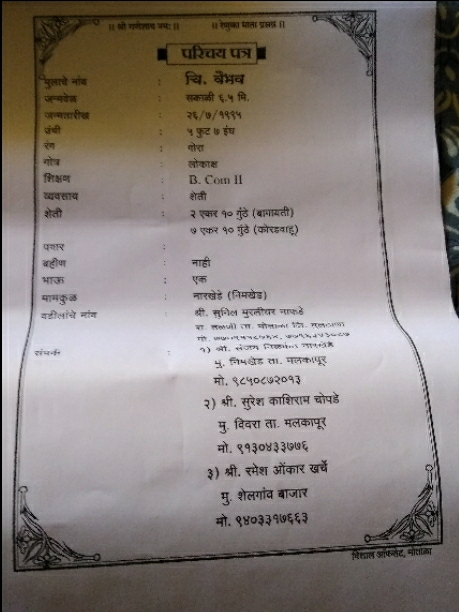 ।। श्री गणेशाय नमः ।। ।। रेणुका माता प्रसन्न ।।
परिचय पत्र
मुलाचे नांव : चि. वैभव
जन्मवेळ : सकाळी ६.५ मि.
जन्मतारीख : २६/७/१९९५
उंची : ५ फुट ७ इंच
रंग : गोरा
गोत्र : लोकाक्ष
शिक्षण : B. Com II
व्यवसाय : शेती
शेती : २ एकर १० गुंठे (बागायती)
७ एकर १० गुंठे (कोरडवाहू)
पगार :
बहीण : नाही
भाऊ : एक
मामकुळ : नारखेडे (निमखेड)
वडीलांचे नांव : श्री. सुनिल मुरलीधर नाफडे
संपर्क : १) श्री. संजय नारखेडे
मु. निमखेड ता. मलकापूर
मो. ९८५०८७२०१३
२) श्री. सुरेश काशिराम चोपडे
मु. दिवरा ता. मलकापूर
मो. ९१३०४३३७७६
३) श्री. रमेश ओंकार खर्चे
मु. शेलगांव बाजार
मो. ९४०३३१७६६३
विशाल ऑफसेट, मोताळा